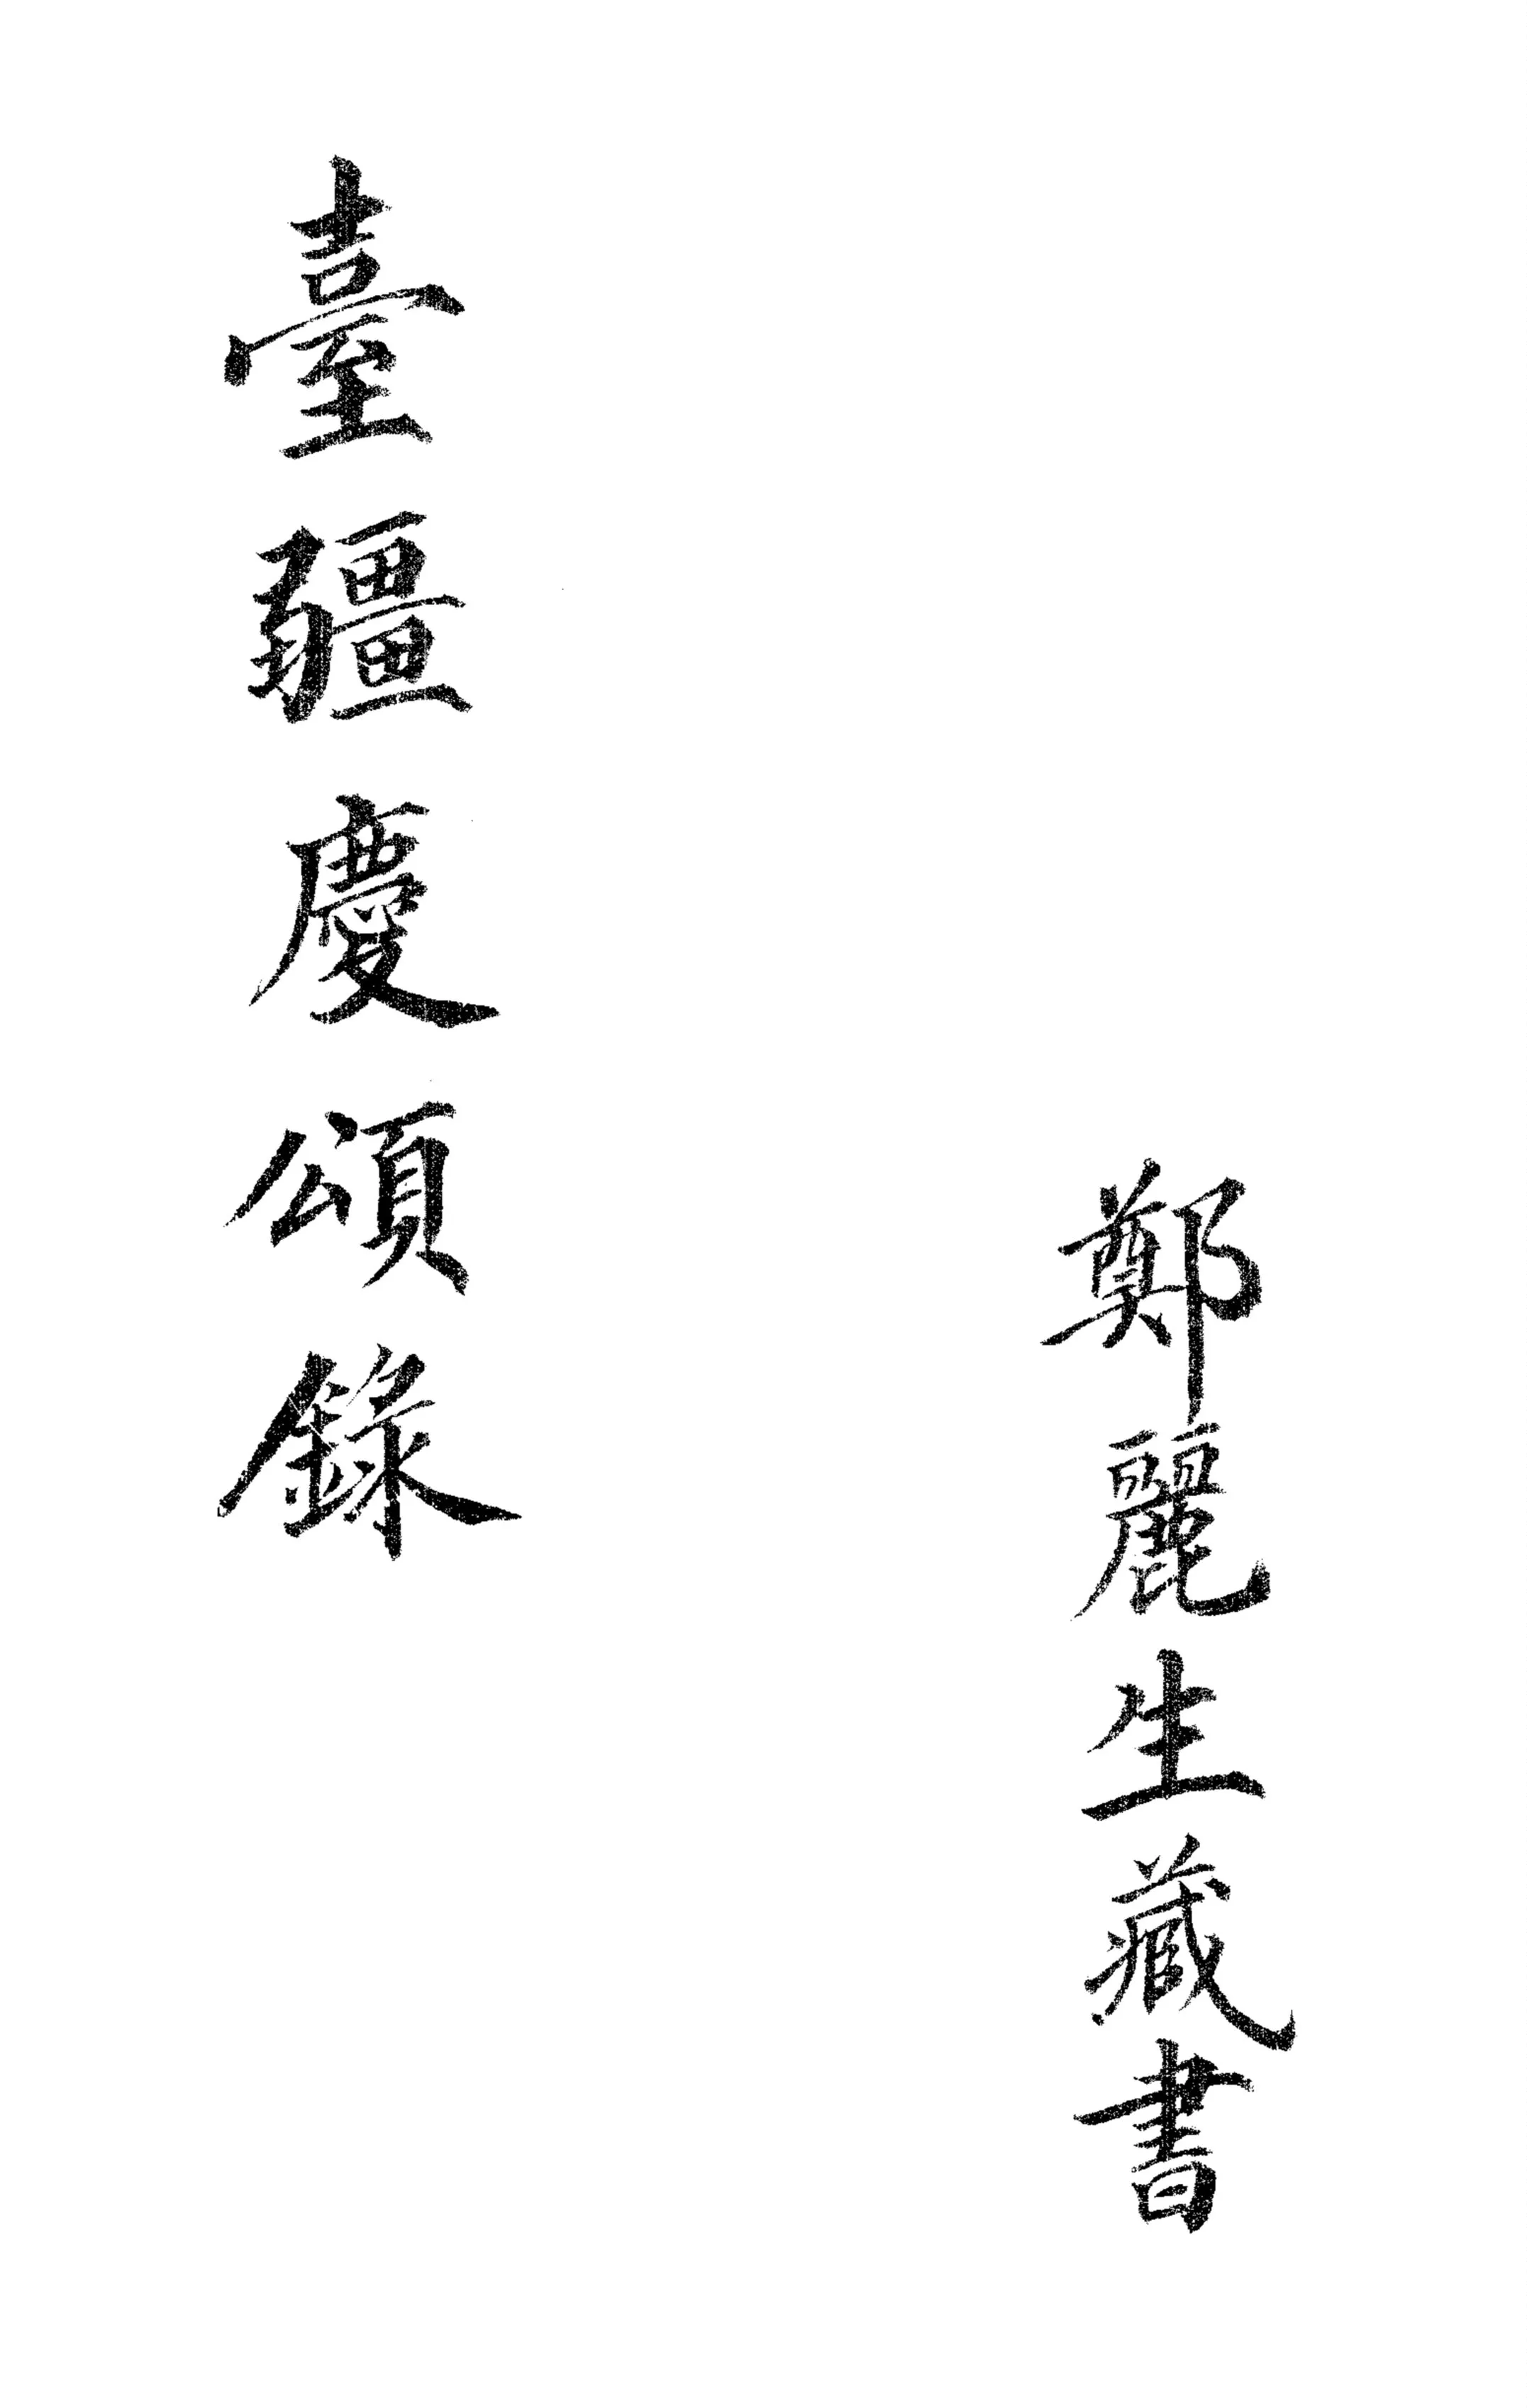 鄭麗生藏書
臺疆慶頌錄